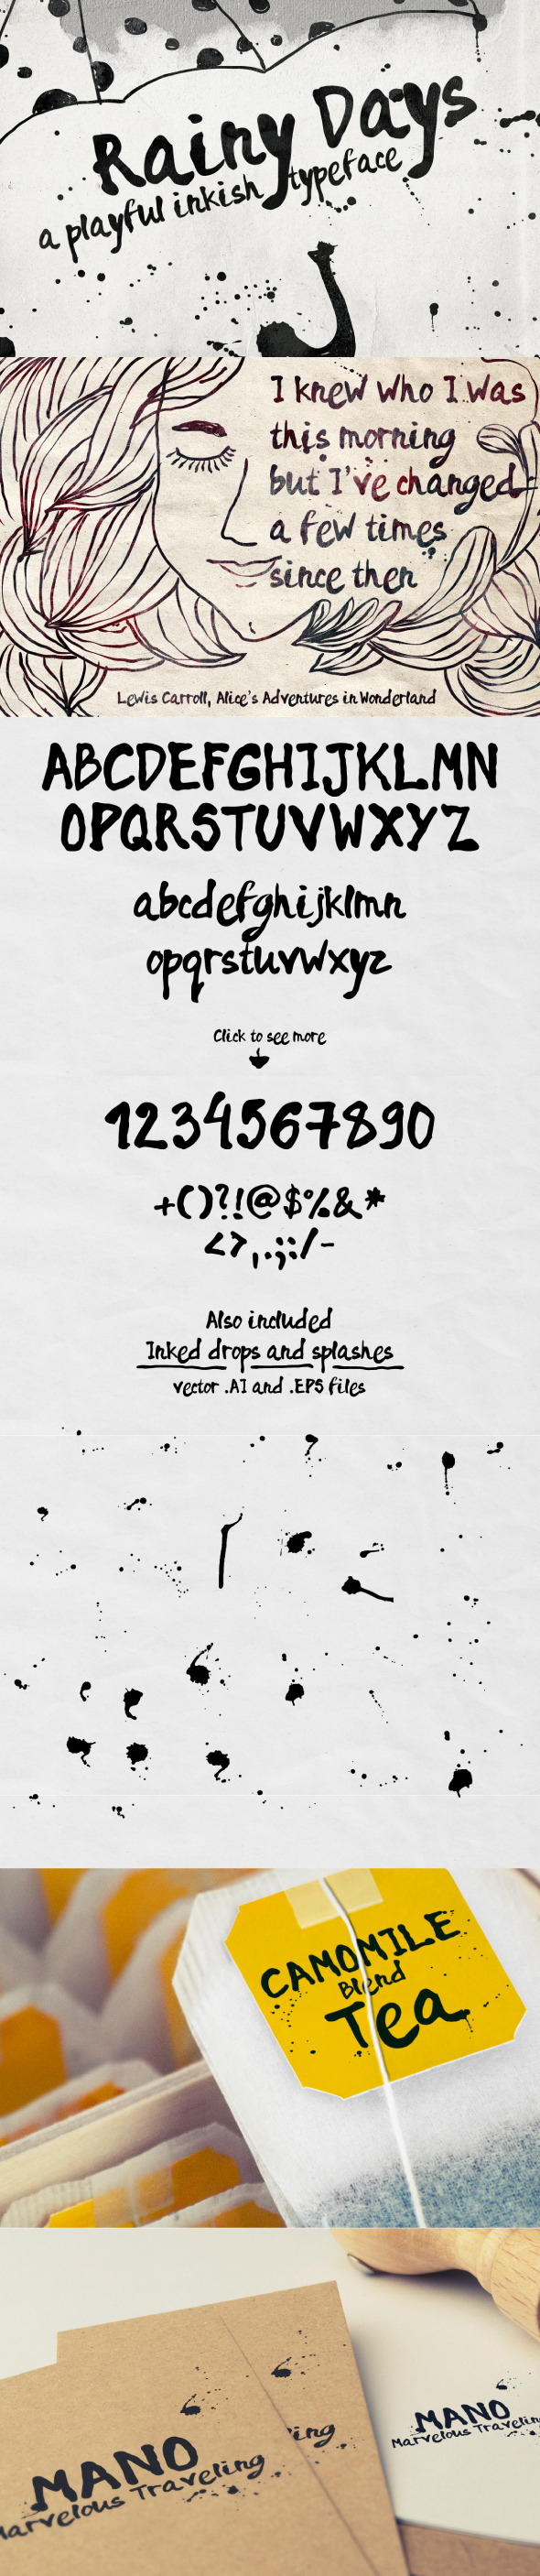 Rainy Days
a playful inkish typeface
I knew who I was
this morning
but I've changed
a few times
since then
Lewis Carroll, Alice's Adventures in Wonderland
ABCDEFGHIJKLMN
OPQRSTUVWXYZ
abcdefghijklmn
opqrstuvwxyz
Click to see more
1234567890
+()?!@$%&*
<>,.;:/-
Also included
Inked drops and splashes
vector .AI and .EPS files
CAMOMILE
Blend
Tea
MANO
Marvelous Traveling
ing
MANO
Marvelous Traveling